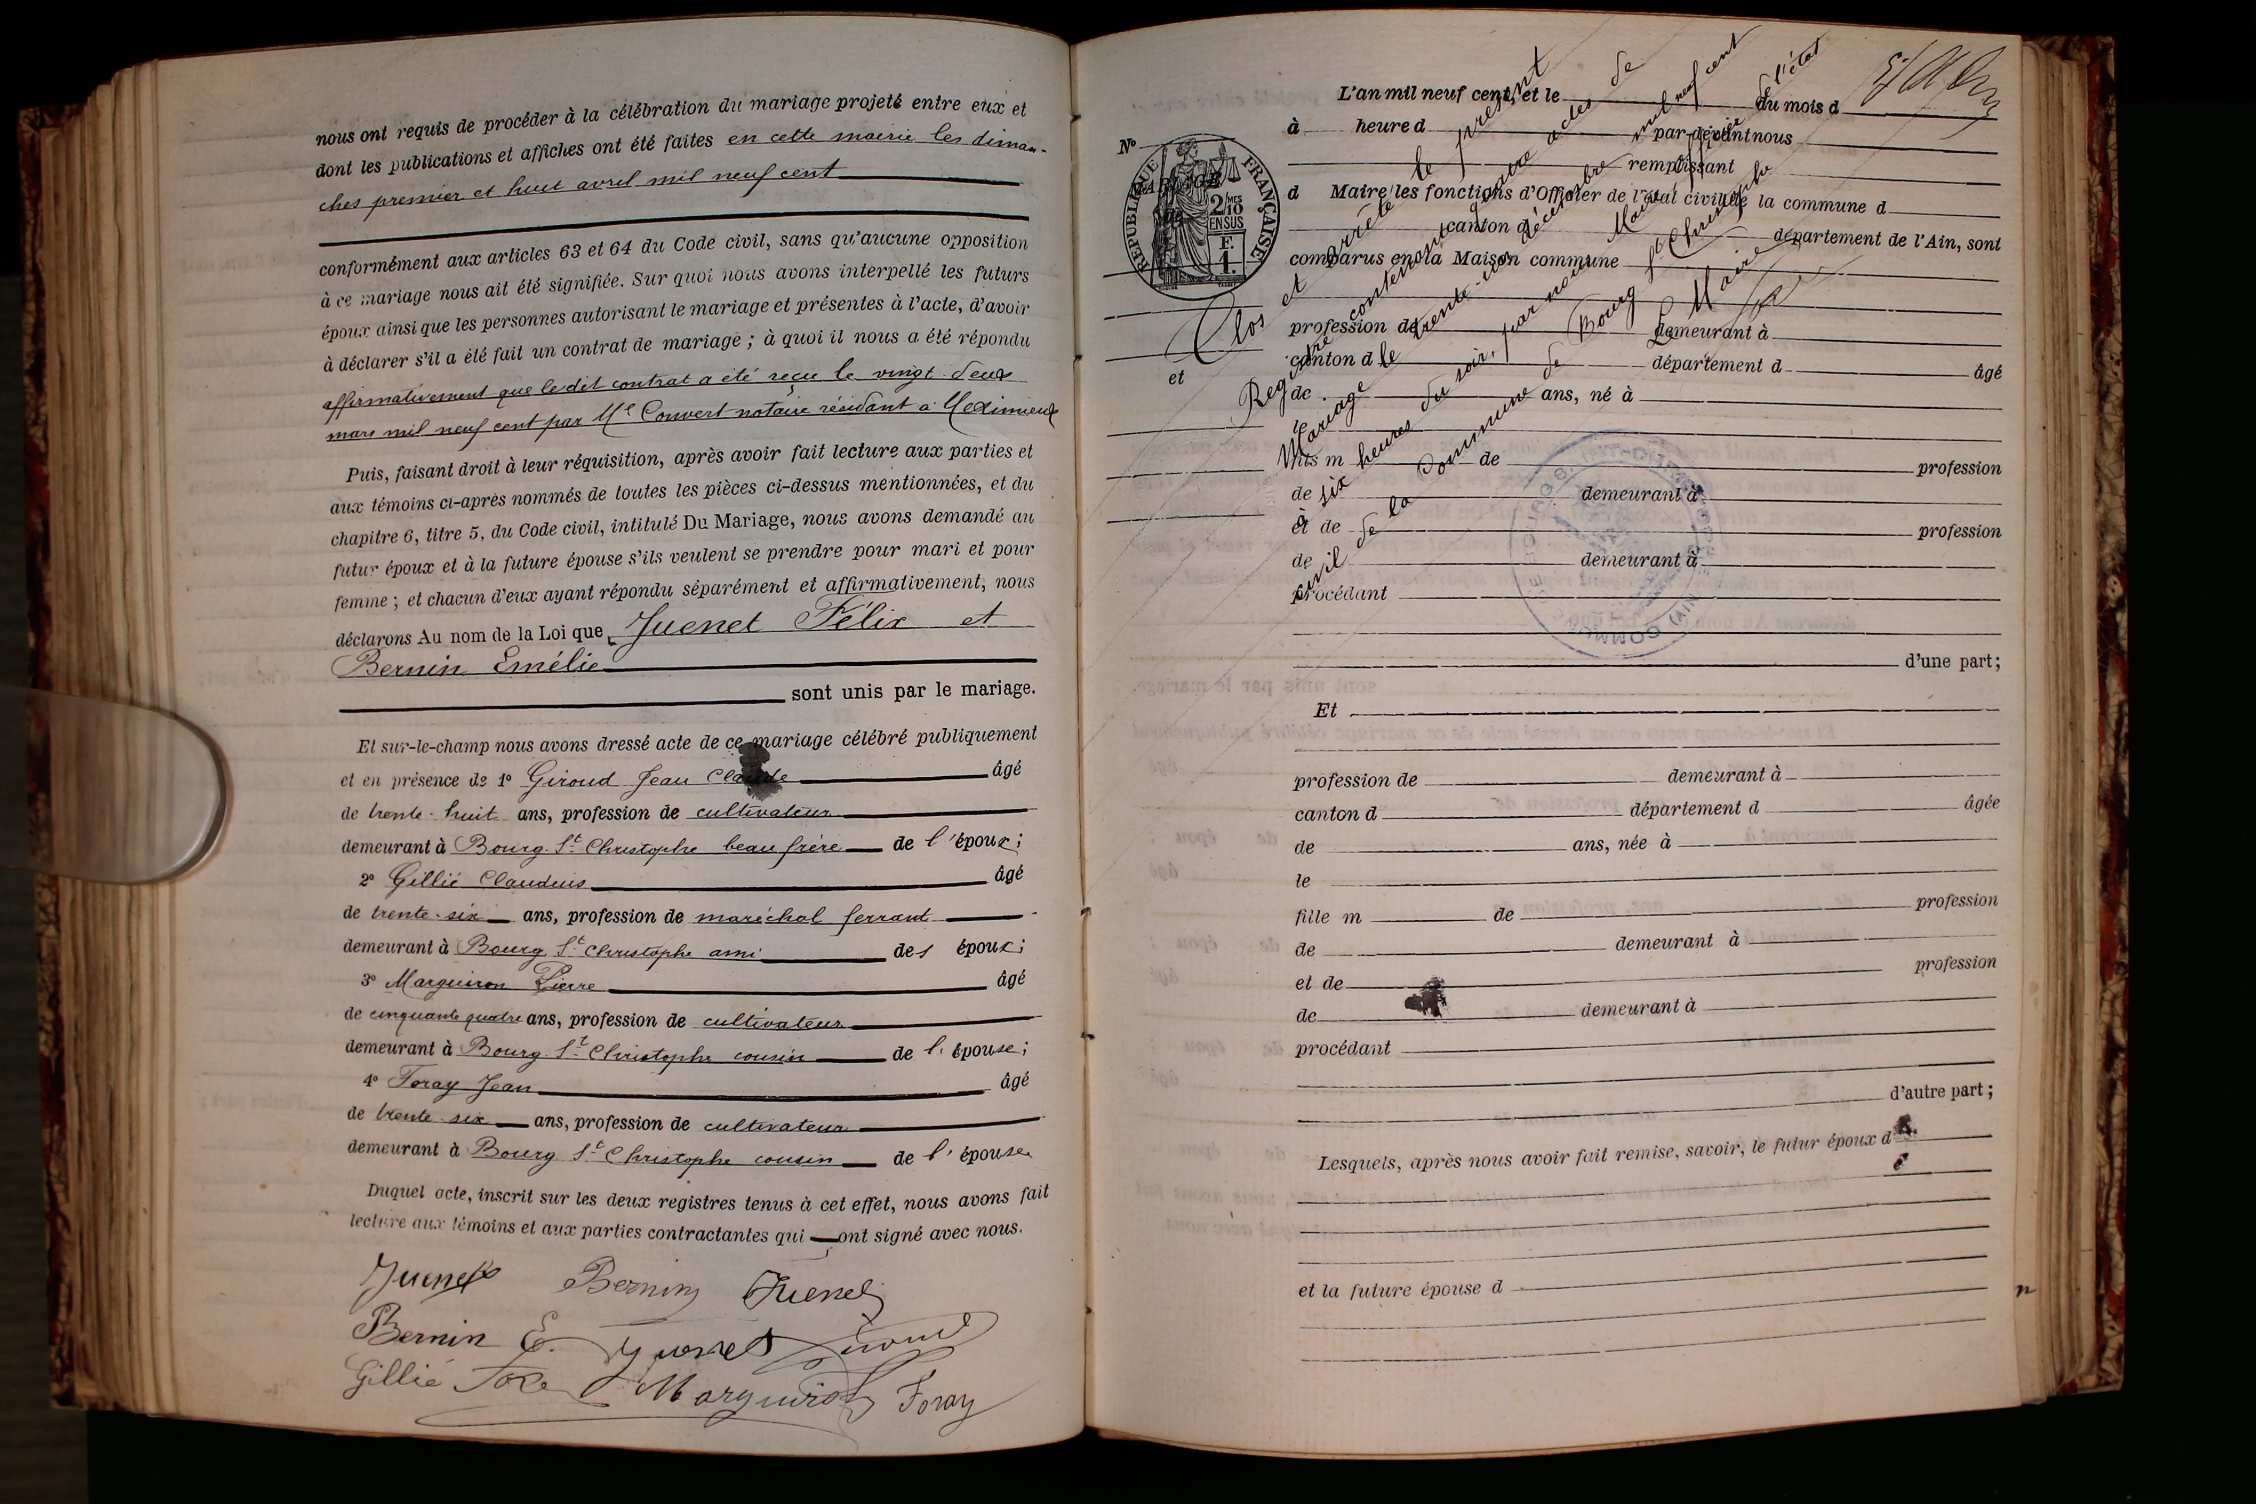 nous ont requis de procéder à la célébration du mariage projeté entre eux et
dont les publications et affiches ont été faites en cette mairie les diman-
ches premier et huit avril mil neuf cent
conformément aux articles 63 et 64 du Code civil, sans qu'aucune opposition
à ce mariage nous ait été signifiée. Sur quoi nous avons interpellé les futurs
époux ainsi que les personnes autorisant le mariage et présentes à l'acte, d'avoir
à déclarer s'il a été fait un contrat de mariage ; à quoi il nous a été répondu
affirmativement que le dit contrat a été reçu le vingt-deux
mars mil neuf cent par Me Convert notaire résidant à Meximieux
Puis, faisant droit à leur réquisition, après avoir fait lecture aux parties et
aux témoins ci-après nommés de toutes les pièces ci-dessus mentionnées, et du
chapitre 6, titre 5, du Code civil, intitulé Du Mariage, nous avons demandé au
futur époux et à la future épouse s'ils veulent se prendre pour mari et pour
femme ; et chacun d'eux ayant répondu séparément et affirmativement, nous
déclarons Au nom de la Loi que Juenet Félix et
Bernin Emélie
sont unis par le mariage.
Et sur-le-champ nous avons dressé acte de ce mariage célébré publiquement
et en présence de 1º Giroud Jean Claude âgé
de trente-huit ans, profession de cultivateur
demeurant à Bourg St Christophe beau frère de l'époux ;
2º Gillié Claudius âgé
de trente-six ans, profession de maréchal ferrant
demeurant à Bourg St Christophe ami des époux ;
3º Marguiron Pierre âgé
de cinquante quatre ans, profession de cultivateur
demeurant à Bourg St Christophe cousin de l'épouse ;
4º Foray Jean âgé
de trente-six ans, profession de cultivateur
demeurant à Bourg St Christophe cousin de l'épouse
Duquel acte, inscrit sur les deux registres tenus à cet effet, nous avons fait
lecture aux témoins et aux parties contractantes qui ont signé avec nous.
Juenet Bernin Juenet
Bernin E. Juenet Giroud
Gillié Marguiron Foray
L'an mil neuf cent, et le du mois d
à heure d par-devant nous
Nº
remplissant
d Maire les fonctions d'Officier de l'état civil de la commune d
canton d département de l'Ain, sont
comparus en la Maison commune
RÉPUBLIQUE FRANÇAISE
2/10 MES
EN SUS
F.
1.
profession de demeurant à
canton d département d âgé
et
de ans, né à
le
fils m de profession
de demeurant à
et de profession
de demeurant à
procédant
d'une part ;
Clos et arrêté le présent
Registre contenant quatre actes de
Mariage le trente-un décembre mil neuf cent
à six heures du soir, par nous Maire officier de l'état
civil de la Commune de Bourg St Christophe
Le Maire
Et
profession de demeurant à
canton d département d âgée
de ans, née à
le
fille m de profession
de demeurant à
et de profession
de demeurant à
procédant
d'autre part ;
Lesquels, après nous avoir fait remise, savoir, le futur époux d
et la future épouse d